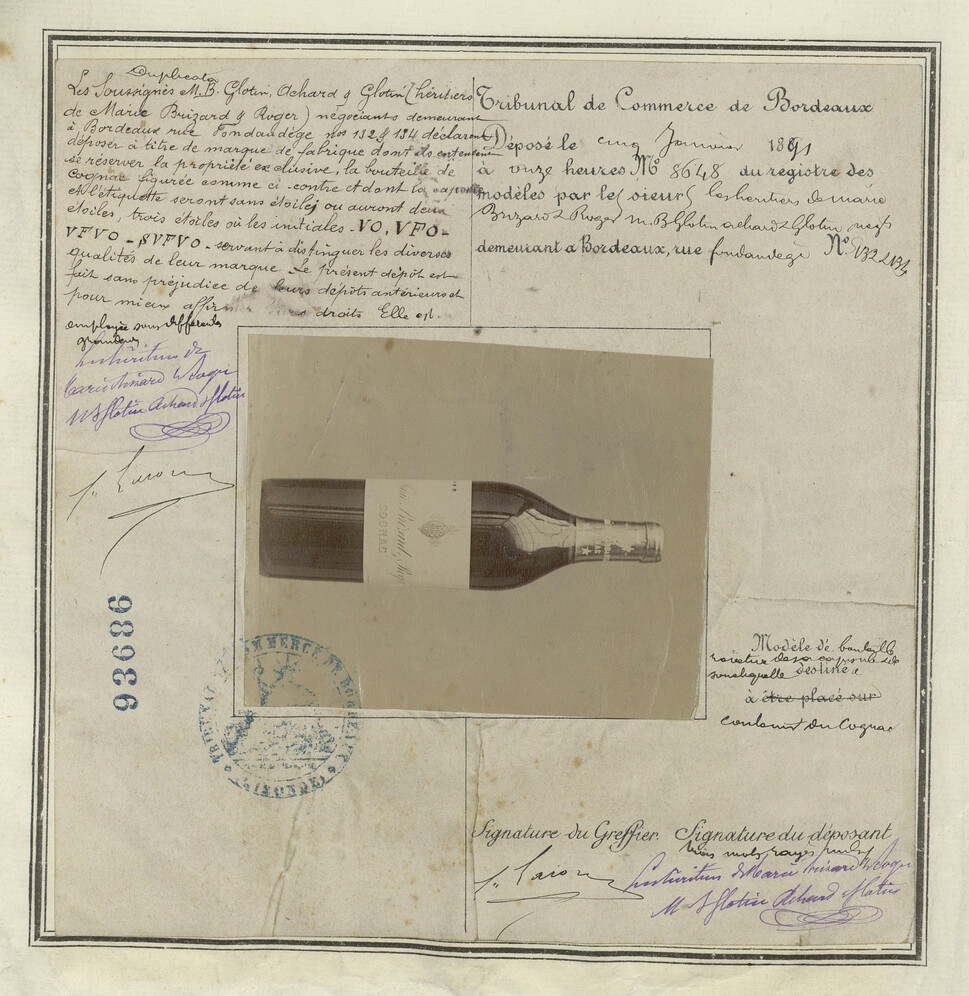 Duplicata
Les Soussignés M.B. Glotin, Achard & Glotin (héritiers
de Marie Brizard & Roger) négociants demeurant
à Bordeaux rue Fondaudège nos 132 & 134 déclarent
déposer à titre de marque de fabrique dont ils entendent
se réserver la propriété exclusive, la bouteille de
Cognac figurée comme ci-contre et dont la capsule
et l'étiquette seront sans étoiles ou auront deux
étoiles, trois étoiles où les initiales VO, VFO-
VFVO - SVFVO - servant à distinguer les diverses
qualités de leur marque. Le présent dépôt est
fait sans préjudice de leurs dépôts antérieurs et
pour mieux affirmer leurs droits Elle est
employée sous différentes
grandeurs
Les héritiers de
Marie Brizard & Roger
M B Glotin Achard & Glotin
93686
Tribunal de Commerce de Bordeaux
Déposé le cinq Janvier 1891
à onze heures No 8648 du registre des
modèles par le (sieur) les héritiers de marie
Brizard & Roger M. B Glotin achard & Glotin negts
demeurant a Bordeaux, rue fondaudege No. 132 & 134
Brizard & Rog
COGNAC
TRIBUNAL DE COMMERCE DE BORDEAUX
(GIRONDE)
Modèle de bouteille
revetue de sa capsule et de
son etiquette destiné e
à être placé sur
contenir du Cognac
Signature du Greffier. Signature du déposant
trois mots rayés nuls
Les héritiers de Marie Brizard & Roger
M B Glotin Achard & Glotin